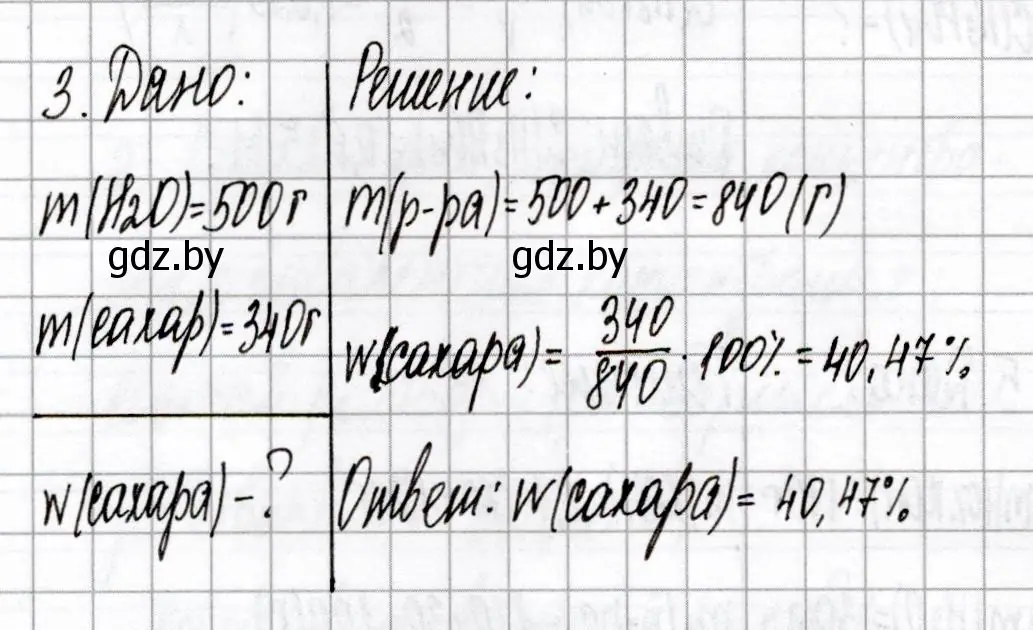 3. Дано:
m(H2O)=500г
m(сахар)=340г
w(сахара)-?
Решение:
m(р-ра)=500+340=840(г)
w(сахара)= 340/840 · 100% = 40,47%
Ответ: w(сахара)= 40,47%
gdz.by
gdz.by